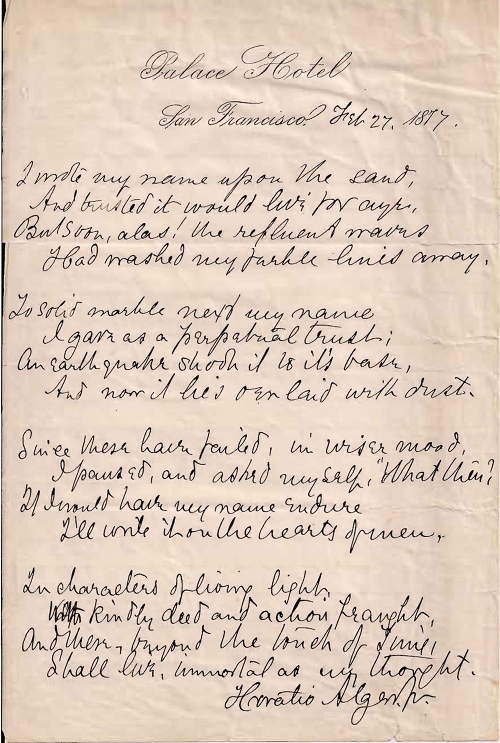 Palace Hotel
San Francisco. Feb 27. 1877.
I wrote my name upon the sand,
And trusted it would live for aye;
But soon, alas! the refluent waves
Had washed my feeble lines away.
To solid marble next my name
I gave as a perpetual trust;
An earthquake shook it to it's base,
And now it lies overlaid with dust.
Since these have failed, in wiser mood,
I paused, and asked myself, "What then?
If I would have my name endure
I'll write it on the hearts of men,
In characters of living light,
With kindly deed and action fraught,
And there, beyond the touch of Time,
Shall live, immortal as my thought.
Horatio Alger, Jr.